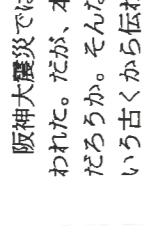 阪神大震災では
われた。だが、本
だろうか。そんな
いう古くから伝